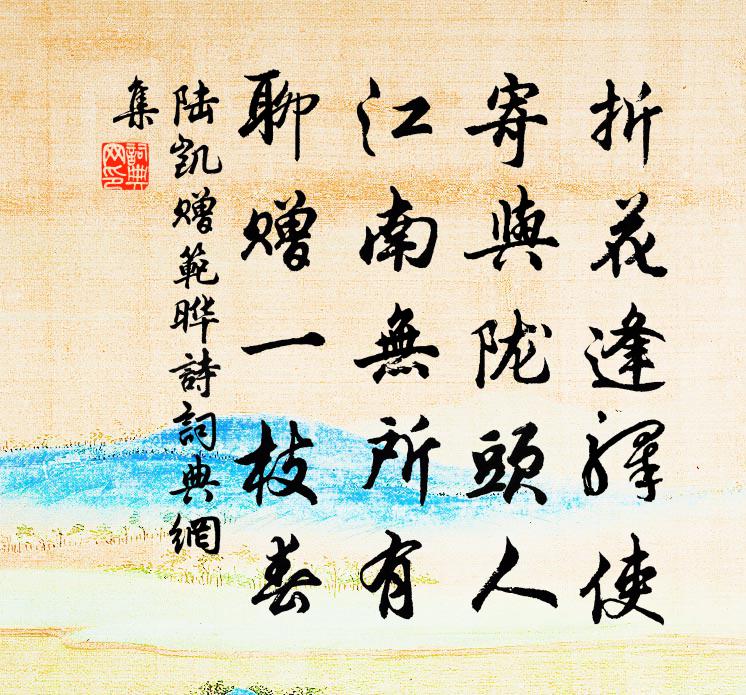 折花逢驛使
寄與陇頭人
江南無所有
聊赠一枝春
陆凱赠範晔詩詞典網
集
詞典
网印